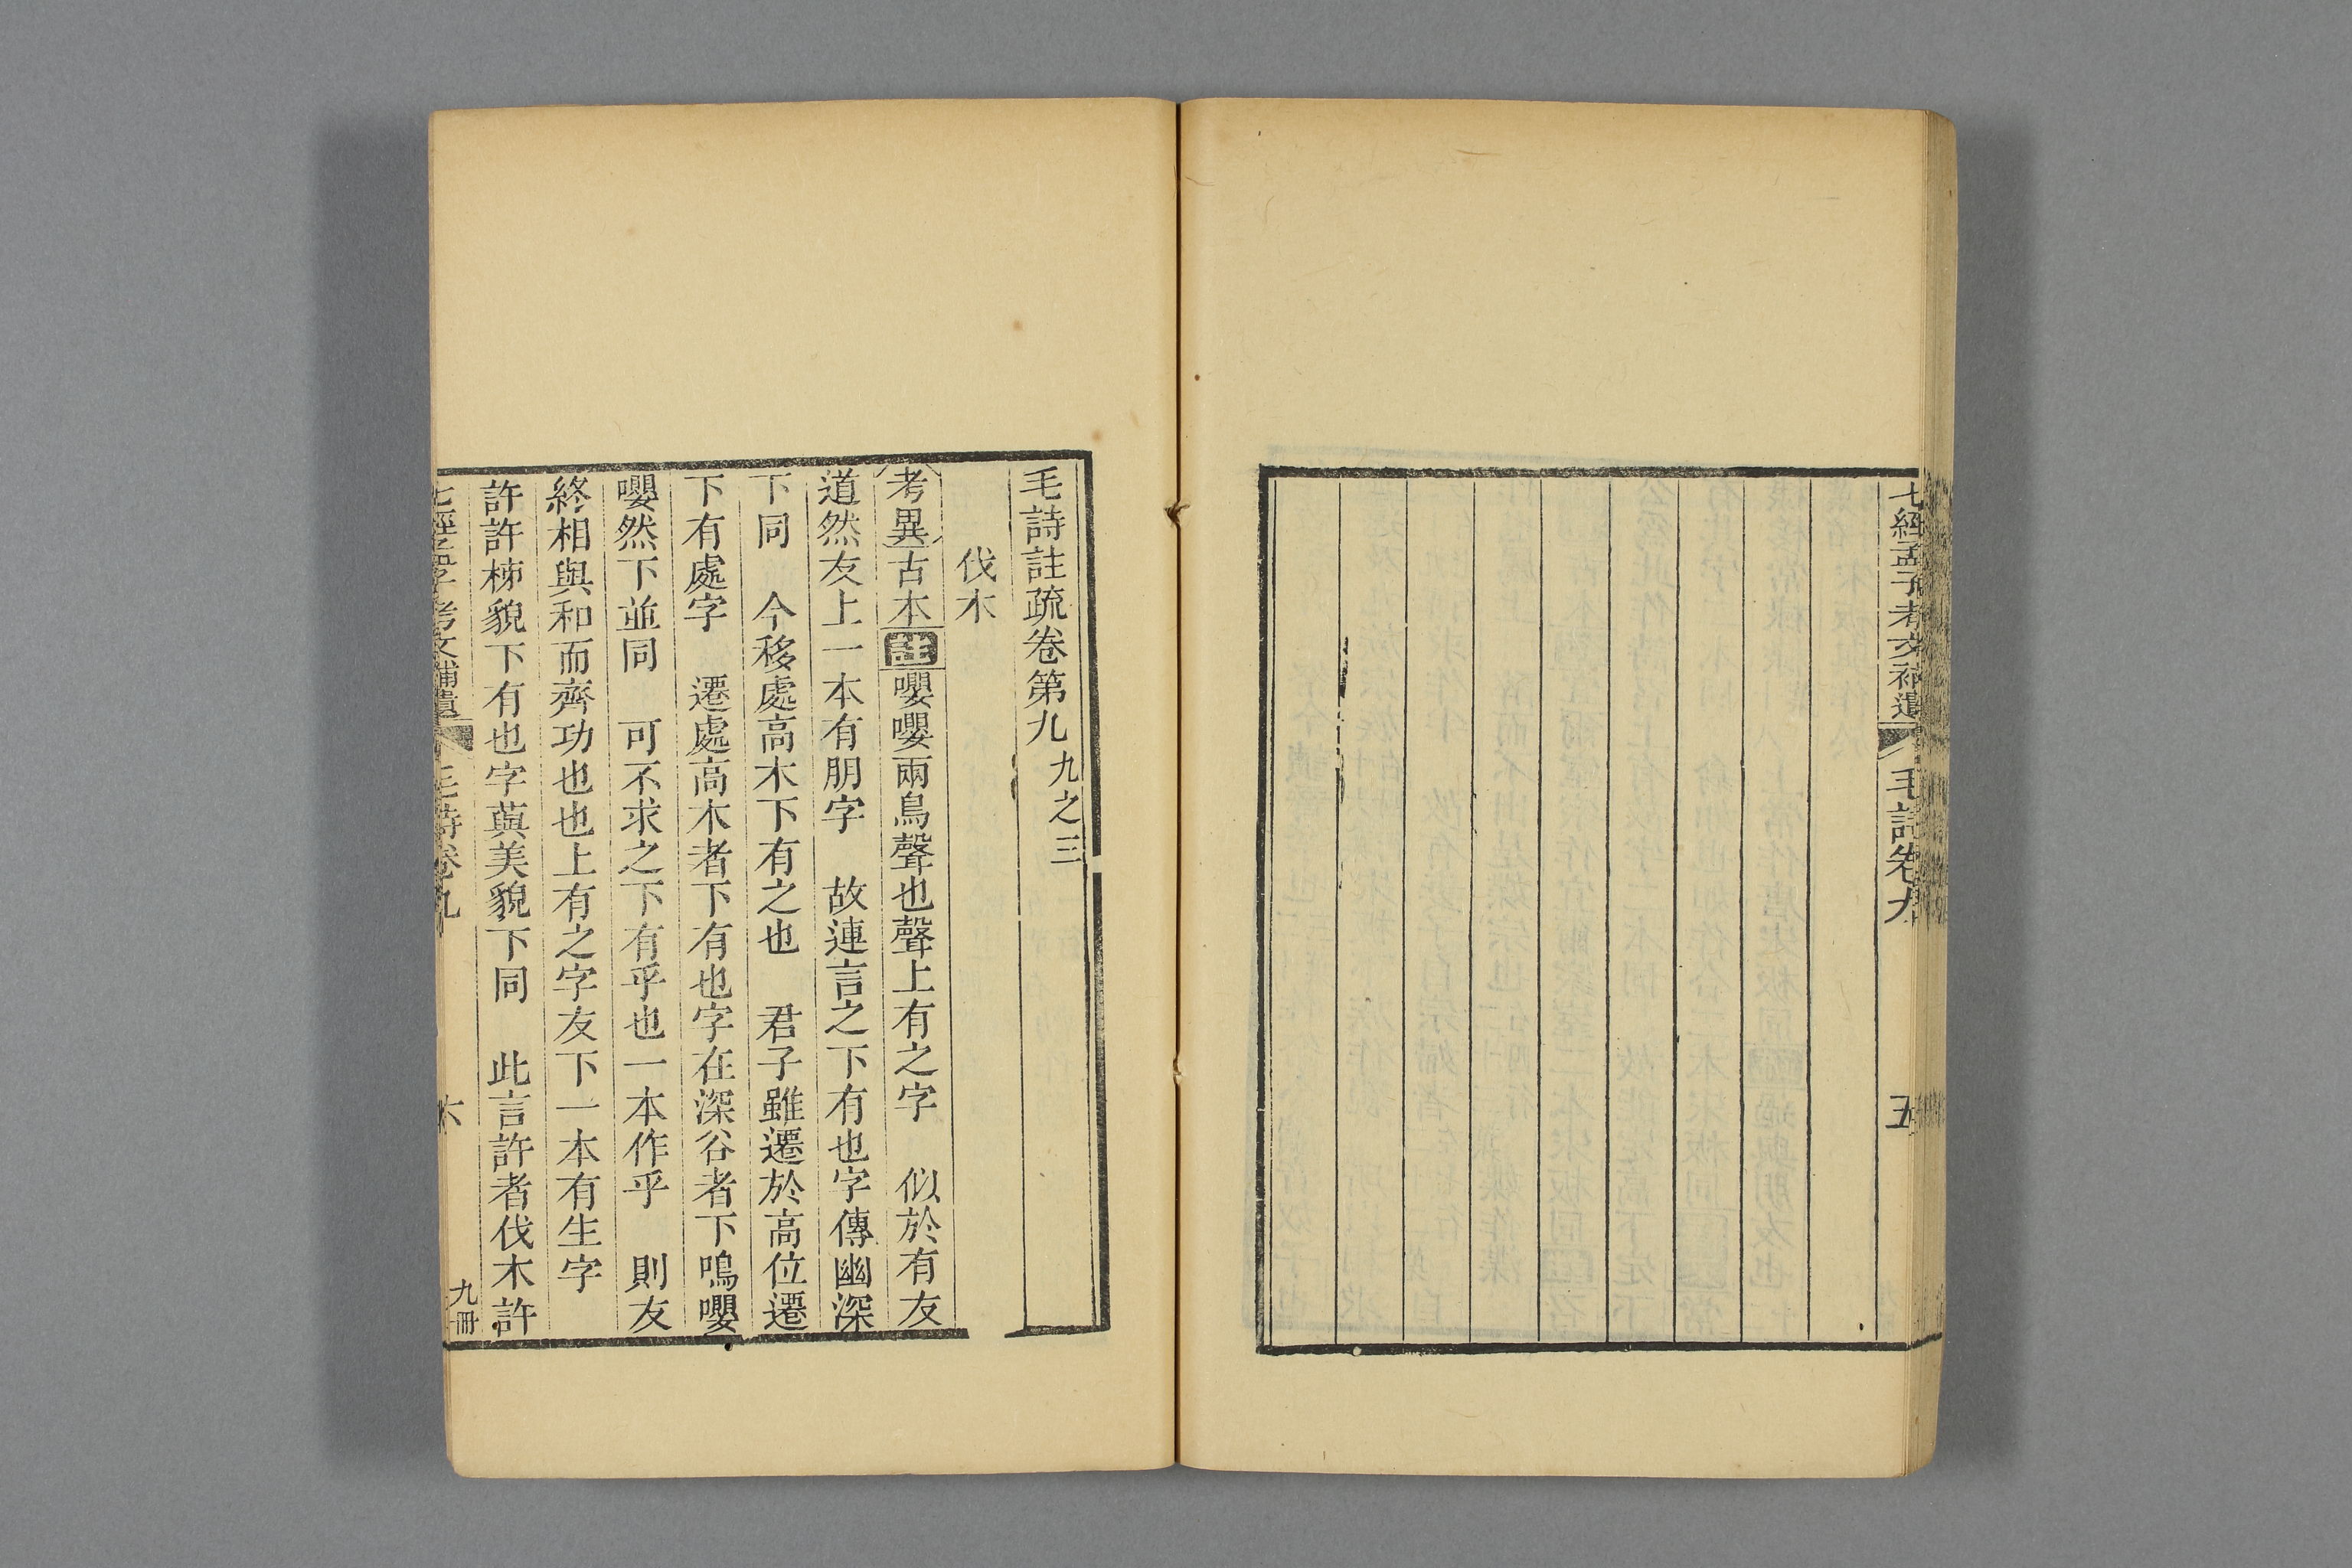 七經孟子考文補遺 毛詩卷九 五
毛詩註疏卷第九 九之三
伐木
考異古本註嚶嚶兩鳥聲也聲上有之字 似於有友
道然友上一本有朋字 故連言之下有也字傳幽深
下同 今移處高木下有之也 君子雖遷於高位遷
下有處字 遷處高木者下有也字在深谷者下鳴嚶
嚶然下並同 可不求之下有乎也一本作乎 則友
終相與和而齊功也也上有之字友下一本有生字
許許柹貌下有也字藇美貌下同 此言許者伐木許
七經孟子考文補遺 毛詩卷九 六 九冊